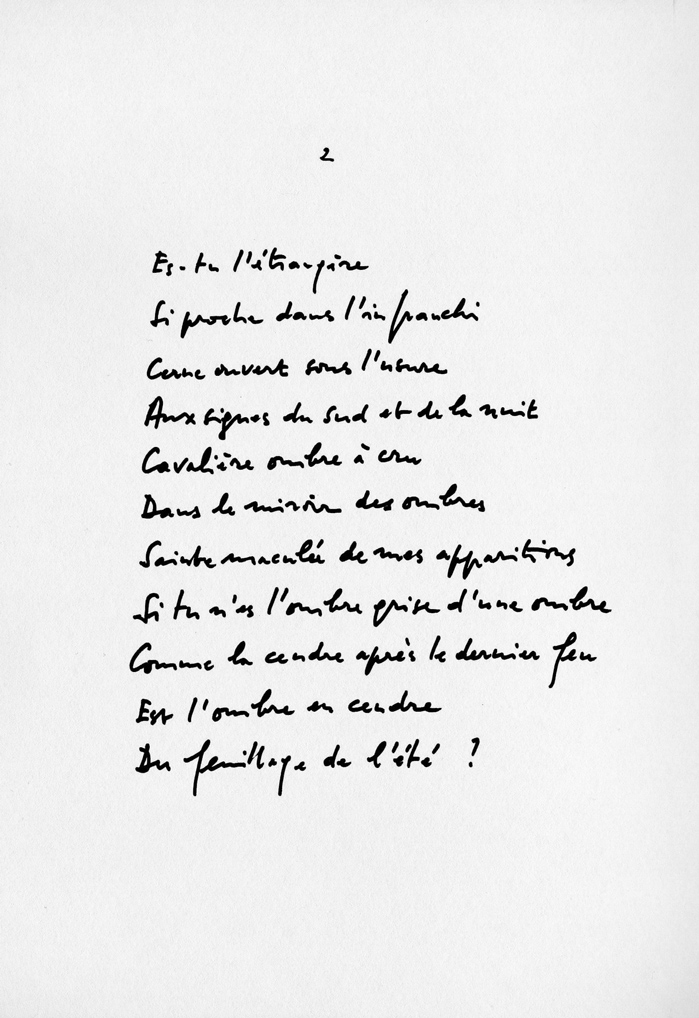 2
Es-tu l'étrangère
Si proche dans l'infranchi
Cerne ouvert sous l'usure
Aux signes du sud et de la nuit
Cavalière ombre à cru
Dans le miroir des ombres
Sainte maculée de mes apparitions
Si tu n'es l'ombre grise d'une ombre
Comme la cendre après le dernier feu
Est l'ombre en cendre
Du feuillage de l'été ?